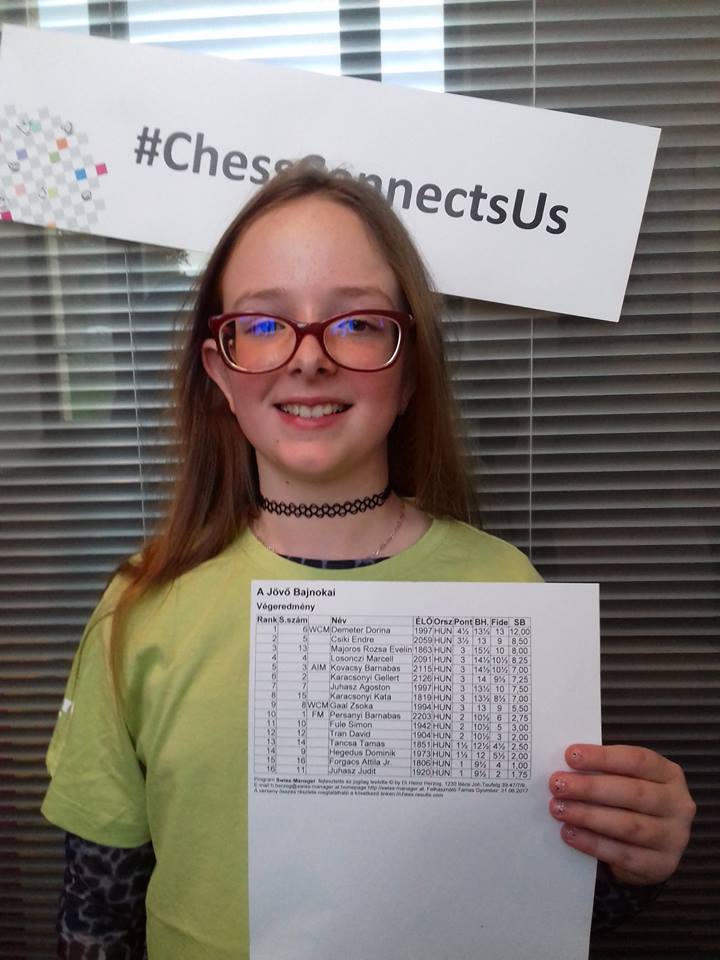 #ChessConnectsUs
A Jövő Bajnokai
Végeredmény
Rank S.szám Név ÉLŐ Orsz Pont BH. Fide SB
1 6 WCM Demeter Dorina 1997 HUN 4½ 13½ 13 12,00
2 5 Csiki Endre 2059 HUN 3½ 13 9 8,50
3 13 Majoros Rozsa Evelin 1863 HUN 3 15½ 10 8,00
4 4 Losonczi Marcell 2091 HUN 3 14½ 10½ 8,25
5 3 AIM Kovacsy Barnabas 2115 HUN 3 14½ 10½ 7,00
6 2 Karacsonyi Gellert 2126 HUN 3 14 9½ 7,25
7 7 Juhasz Agoston 1997 HUN 3 13½ 10 7,50
8 15 Karacsonyi Kata 1819 HUN 3 13½ 8½ 7,00
9 8 WCM Gaal Zsoka 1994 HUN 3 13 9 5,50
10 1 FM Persanyi Barnabas 2203 HUN 2 10½ 6 2,75
11 10 Fule Simon 1942 HUN 2 10½ 5 3,00
12 12 Tran David 1904 HUN 2 10½ 3 2,00
13 14 Tancsa Tamas 1851 HUN 1½ 12½ 4½ 2,50
14 9 Hegedus Dominik 1973 HUN 1½ 12 5½ 2,00
15 16 Forgacs Attila Jr. 1806 HUN 1 9½ 4 1,00
16 11 Juhasz Judit 1920 HUN 1 9½ 2 1,75
Program Swiss-Manager fejlesztette és jogilag levédte © by DI.Heinz Herzog, 1230 Bécs Joh.Teufelg 39-47/7/9,
E-mail h.herzog@swiss-manager.at homepage http://swiss-manager.at, Felhasználó Tamas Gyombier, 21.06.2017
A verseny összes részlete megtalálható a következő linken://chess-results.com